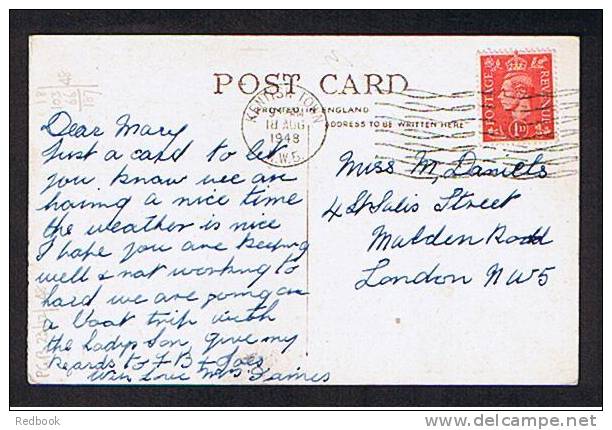 POST CARD
PRINTED IN ENGLAND
ADDRESS TO BE WRITTEN HERE
KENTISH TOWN
18 AUG
1948
N.W.5.
POSTAGE REVENUE
1D
Dear Mary
Just a card to let
you know we are
having a nice time
the weather is nice
I hope you are keeping
well & not working to
hard we are going on
a Boat trip with
the Ladys Son, give my
Regards to F B & Joes
With Love Mrs James
Miss M, Daniels
4 St Silis Street
Malden Road
London N W 5
Redbook
www.delcampe.net